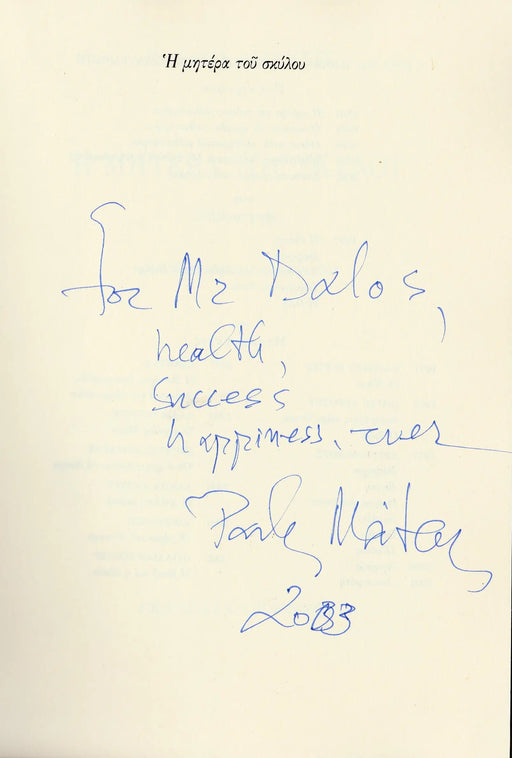 Ἡ μητέρα τοῦ σκύλου
For Mr Dalos,
health,
success
happiness, ever
Pavlos Mátesis
2013